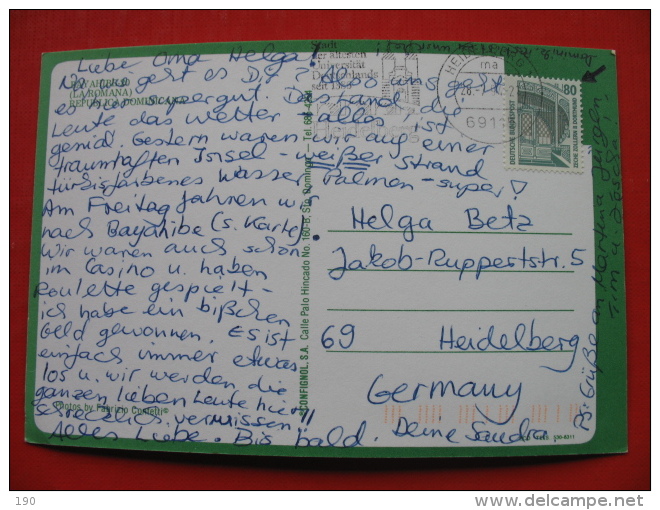 Liebe Oma Helga!
Na, wie geht es Dir? Also uns geht
es hier supergut. Der Strand, die
Leute, das Wetter - alles ist
genial. Gestern waren wir auf einer
traumhaften Insel - weißer Strand
türkisfarbenes Wasser, Palmen - super!
Am Freitag fahren wir
nach Bayahibe (s. Karte)!
Wir waren auch schon
im Casino u. haben
Roulette gespielt -
ich habe ein bißchen
Geld gewonnen. Es ist
einfach immer etwas
los u. wir werden die
ganzen lieben Leute hier
schrecklich vermissen!!
Alles Liebe. Bis bald. Deine Sandra
BAYAHIBE
(LA ROMANA)
REPUBLICA DOMINICANA
Photos by Fabrizio Comelli
SCONFIGNOL, S.A. Calle Palo Hincado No. 160-B, Sto. Domingo - Tel.
Stadt
der ältesten
Universität
Deutschlands
seit 1386
Heidelberg
HEIDELBERG
ma
28.
6911
80
DEUTSCHE BUNDESPOST
ZECHE ZOLLERN II DORTMUND
Helga Betz
Jakob-Ruppertstr. 5
69 Heidelberg
Germany
PS: Grüße an Martina, Jürgen,
Tim u.
190